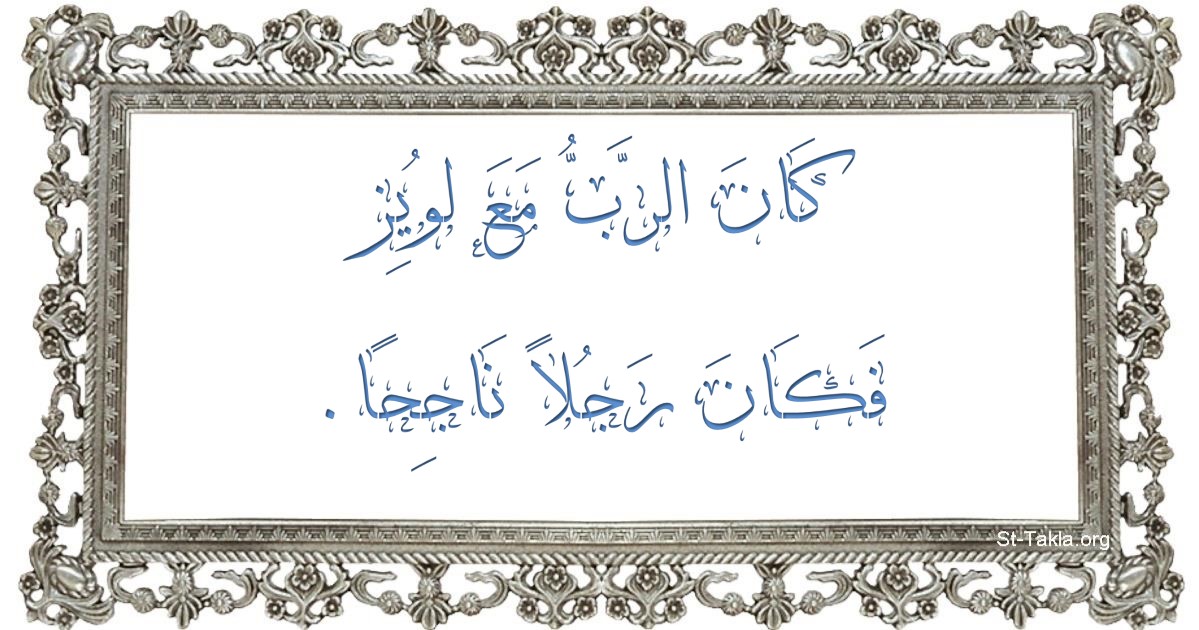 كَانَ الرَّبُّ مَعَ لويُزِ
فَكَانَ رَجُلاً نَاجِحًا .
St-Takla.org